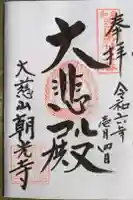 奉拝
令和六年壱月四日
大悲殿
大慈山朝光寺